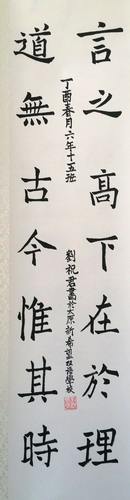 言之高下在於理
道無古今惟其時
丁酉春月六年十五班
劉祝君書於太原新希望双语學校